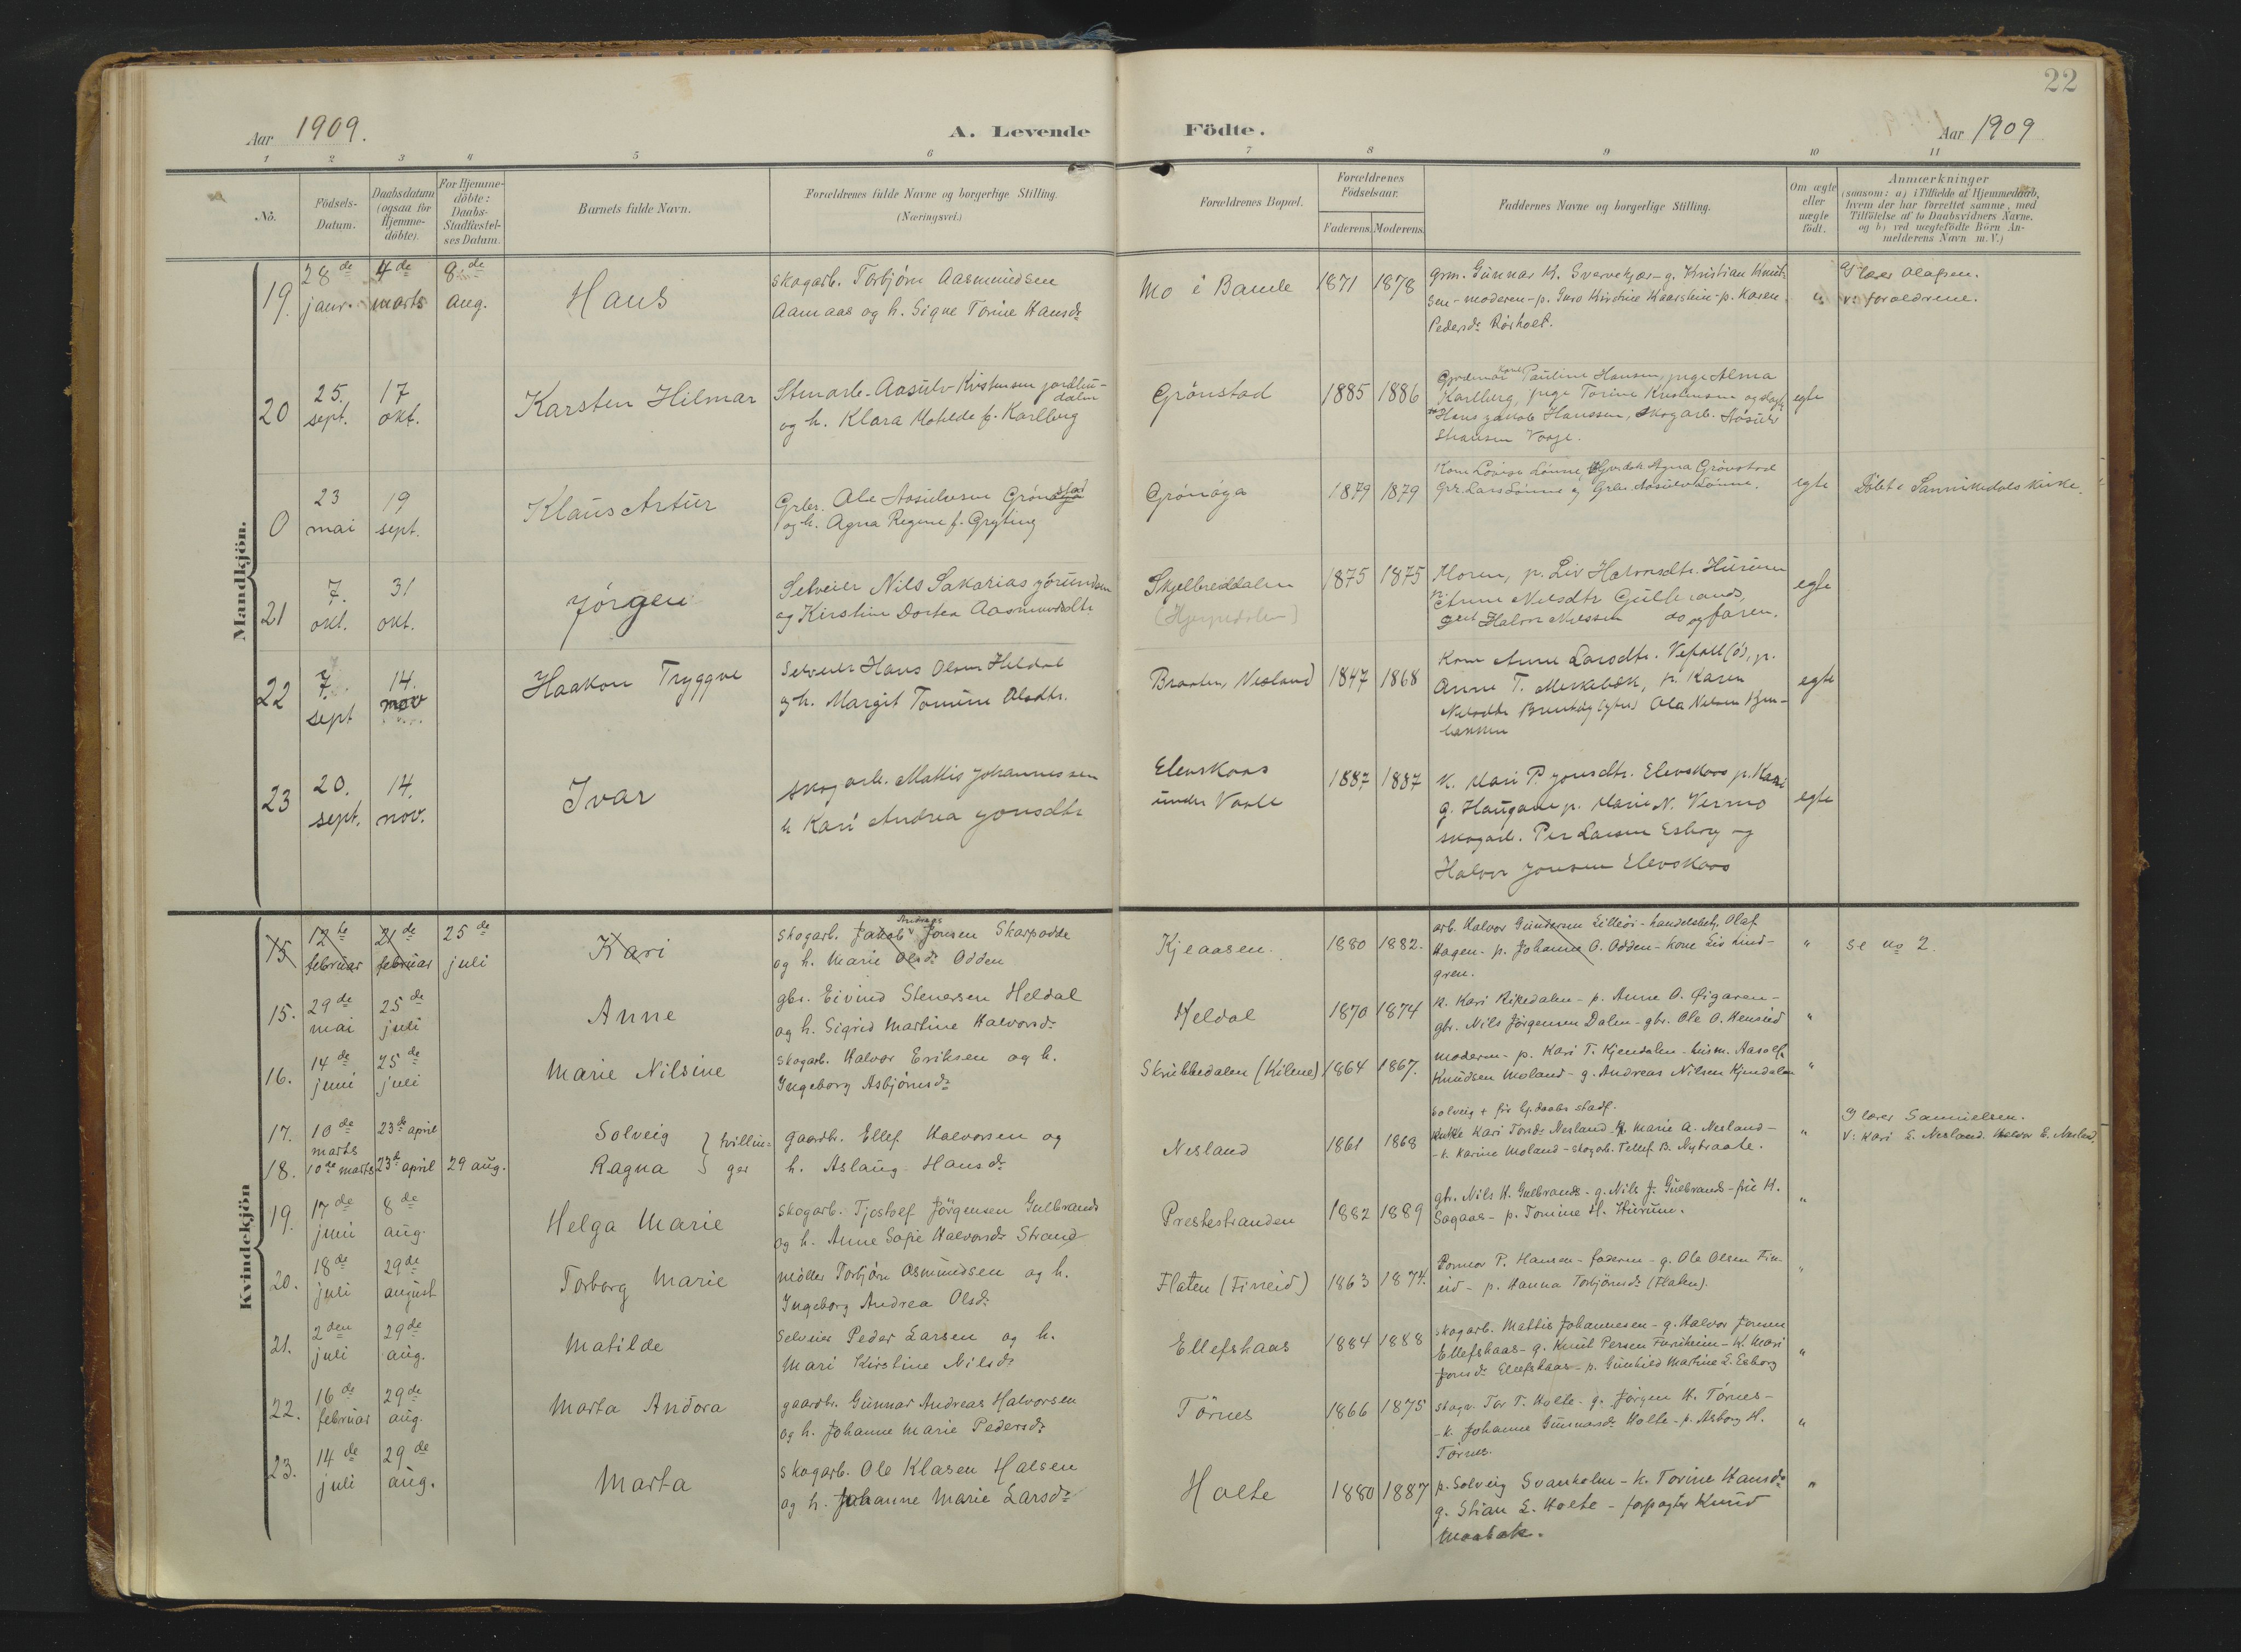 22
Aar 1909.
A. Levende Födte.
Aar 1909
1 2 3 4 5 6 7 8 9 10 11
No.
Födsels-Datum.
Daabsdatum (ogsaa for Hjemme-döbte).
For Hjemme-döbte: Daabs-Stadfæstel-ses Datum.
Barnets fulde Navn.
Forældrenes fulde Navne og borgerlige Stilling.
(Næringsvei.)
Forældrenes Bopæl.
Forældrenes Födselsaar.
Faderens. Moderens.
Faddernes Navne og borgerlige Stilling.
Om ægte eller uægte födt.
Anmærkninger
(saasom: a) i Tilfælde af Hjemmedaab,
hvem der har forrettet samme, med
Tilföielse af to Daabsvidners Navne.
og b) ved uægtefödte Börn An-
melderens Navn m. V.)
Mandkjön.
19. 28de janr. 4de marts 8de aug.
Hans
skogarb. Torbjørn Aasmundsen
Aamaas og h. Signe Torine Hansdr
Mo i Bamle
1871 1878
grm. Gunnar H. Svervekjær - g. Kristian Knut-
sen - moderen - p. Guro Kirstine Kaarstein - p. Karen
Pedersdr Rørholt.
"
lærer Olafsen.
v: forældrene.
20 25. sept. 17 okt.
Karsten Hilmar
Stenarb. Aasulv Kristensen jordbu-
dalen
og h. Klara Matilde f. Karlberg
Grönstad
1885 1886
Gjordemor Pauline Hansen, pige Alma
Karlberg, pige Torine Kristensen og
Hans Jakob Hanssen, skogarb.
egte
0 23 mai 19 sept.
Klaus Artur
Grbr. Ole Aosulvsen Grönstad
og h. Agna Regine f. Gryting
Grönöya
1879 1879
Kone Lovise Lönne
Gbr. Lars Lönne og Grbr. Aosulv Lönne.
egte
Döbt i Sannikedals kirke.
21 7. okt. 31 okt.
Jörgen
Selveier Nils Sakarias Jörundsen
og Kirstine Dortea Aasmundsdtr
Skjelbreddalen
1875 1875
Moren, p. Liv Halvorsdtr. Hurum
p. Anne Nilsdtr Gulbrands,
Halvor Nilssen do og faren.
egte
22 7. sept 14. nov
Haakon Tryggve
Selveier Hans Olsen Heldal
og h. Margit Tomine Olsdtr.
Braaten, Nesland
1847 1868
Kone Anne Larsdtr.
Anne T. p. Karen
Nilsdtr Ola Nilsen Kjen-
egte
23 20. sept. 14. nov.
Ivar
skogarb. Mattis Johannessen
h Kari Andrea Jonsdtr
Elevskaas
under Vaale
1887 1887
K. Mari P. Jonsdtr. Elevskaas p. Kari
G. Haugane p. Marie N. Vermo
skogarb. Per Larsen Esborg og
Halvor Jonsen Elevskaas
egte
Kvindekjön
15 12te februar 21de februar 25de juli
Kari
skogarb. Jakob Andreas Jonsen Skarpodde
og h. Marie Olsdr Odden
Kjeaasen.
1880 1882.
arb. Halvor Gundersen Lilleöi - handelsbetj. Olaf
Hagen - p. Johanne O. Odden - kone Liv Lind-
gren.
"
se no 2.
15. 29de mai 25de juli
Anne
gbr. Eivind Stenersen Heldal
og h. Sigrid Martine Halvorsdr
Heldal
1870 1874
k. Kari Ripedalen - p. Anne O. Øigaren -
gbr. Nils Jörgensen Dalen - gbr. Ole O. Henseid
"
16. 14de juni 25de juli
Marie Nilsine
skogarb. Halvor Eriksen og h.
Ingeborg Asbjörnsdr
Skrubbedalen (Kilene)
1864 1867.
moderen - p. Kari T. Kjendalen - husm. Aasolf
Knudsen Moland - g. Andreas Nilsen Kjendalen
"
17. 10de marts 23de april
Solveig } tvillin-
18. 10de marts 23de april 29 aug.
Ragna } ger
gaardbr. Ellef Halvorsen og
h. Aslaug Hansdr
Nesland
1861 1868
Solveig + før hj. daabs stadf.
Kari Torsdr Nesland - p. Marie A. Nesland -
- k. Karine Moland - skogarb. Tellef B. Nybraate.
"
lærer Samuelsen.
v: Kari E. Nesland. Halvor E. Nesland.
19. 17de juni 8de aug.
Helga Marie
skogarb. Tjostolf Jörgensen Gulbrands
og h. Anne Sofie Halvorsdr Strand
Prestestranden
1882 1889
gbr. Nils H. Gulbrands - g. Nils J. Gulbrands - frk H.
Sagaas - p. Tomine H. Hurum.
"
20. 18de juli 29de august
Torborg Marie
möller Torbjörn Osmundsen og h.
Ingeborg Andrea Olsdr
Flaten (Finneid)
1863 1874.
Gunnar P. Hansen - faderen - g. Ole Olsen Fin-
eid - p. Hanna Torbjörnsdr (Flaten).
"
21. 2den juli 29de aug.
Matilde
selveier Peder Larsen og h.
Mari Kirstine Nilsdr
Ellefskaas
1884 1888
skogarb. Mattis Johannesen - g. Halvor Jonsen
Ellefskaas - g. Knut Persen Furuheim - k. Mari
Jonsdr Ellefskaas - p. Gunhild Martine L. Esborg
"
22. 16de februar 29de aug.
Marta Andora
gaardbr. Gunnar Andreas Halvorsen
og h. Johanne Marie Pedersdr
Törnes
1866 1875
skogv. Tor T. Holte - g. Jörgen H. Törnes -
- k. Johanne Gunnarsdr Holte - p. Asborg H.
Törnes.
"
23. 14de juli 29de aug.
Marta
skogarb. Ole Klasen Halsen
og h. Johanne Marie Larsdr
Holte
1880 1887
p. Solveig Svanholm - k. Torine Hansdr
g. Stian L. Holte - forpagter Knud
Moebæk.
"